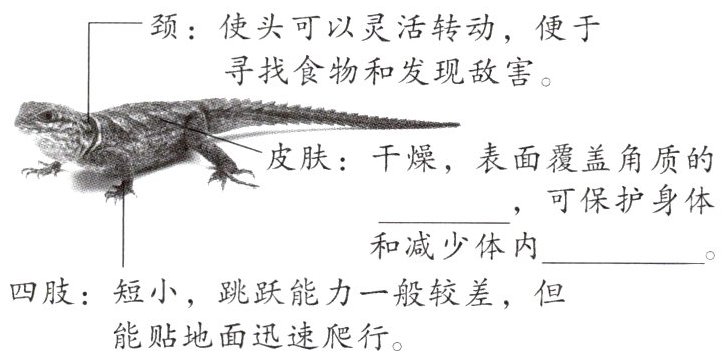 颈：使头可以灵活转动，便于
寻找食物和发现敌害。
皮肤：干燥，表面覆盖角质的
________，可保护身体
和减少体内__________。
四肢：短小，跳跃能力一般较差，但
能贴地面迅速爬行。